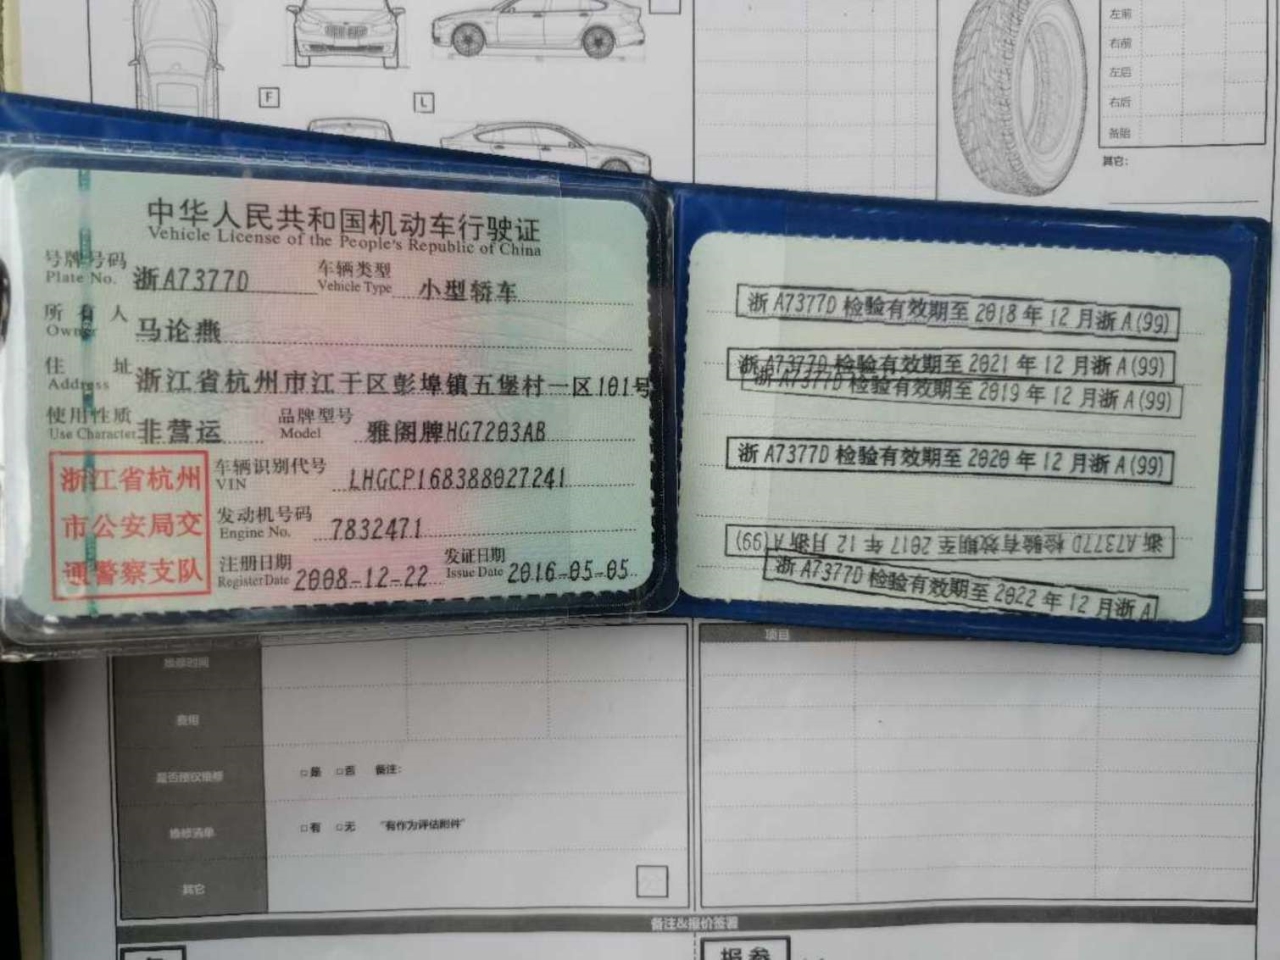 左前
右前
左后
右后
备胎
其它:
F
L
中华人民共和国机动车行驶证
Vehicle License of the People's Republic of China
号牌号码 浙A7377D 车辆类型 小型轿车
Plate No. Vehicle Type
所有人 马论燕
Owner
住址 浙江省杭州市江干区彭埠镇五堡村一区101号
Address
使用性质 非营运 品牌型号 雅阁牌HG7203AB
Use Character Model
浙江省杭州
市公安局交
通警察支队
车辆识别代号 LHGCP168388027241
VIN
发动机号码 7832471
Engine No.
注册日期 2008-12-22 发证日期 2016-05-05
Register Date Issue Date
浙A7377D检验有效期至2018年12月浙A(99)
浙A7377D检验有效期至2021年12月浙A(99)
浙A7377D检验有效期至2019年12月浙A(99)
浙A7377D检验有效期至2020年12月浙A(99)
浙A7377D检验有效期至2017年12月浙A(99)
浙A7377D检验有效期至2022年12月浙A
维修时间
费用
是否授权维修 □是 □否 备注:
维修清单 □有 □无 "有作为评估附件"
其它
项目
备注&报价签署